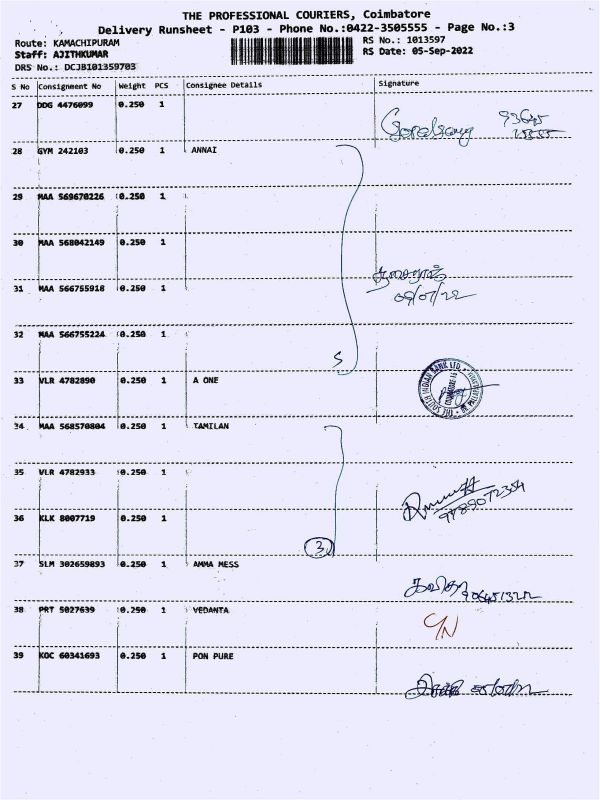 THE PROFESSIONAL COURIERS, Coimbatore
Delivery Runsheet - P103 - Phone No.:0422-3505555 - Page No.:3
Route: KAMACHIPURAM
Staff: AJITHKUMAR
DRS No.: DCJB101359703
RS No.: 1013597
RS Date: 05-Sep-2022
S No Consignment No Weight PCS Consignee Details Signature
27 DDG 4476099 0.250 1
28 GYM 242103 0.250 1 ANNAI
29 MAA 569670226 0.250 1
30 MAA 568042149 0.250 1
31 MAA 566755918 0.250 1
32 MAA 566755224 0.250 1
5
33 VLR 4782890 0.250 1 A ONE
THE SOUTH INDIAN BANK LTD.
34 MAA 568570804 0.250 1 TAMILAN
35 VLR 4782933 0.250 1
9789072354
36 KLK 8007719 0.250 1
3
37 SLM 302659893 0.250 1 AMMA MESS
கவிதா
38 PRT 5027639 0.250 1 VEDANTA
C/N
39 KOC 60341693 0.250 1 PON PURE